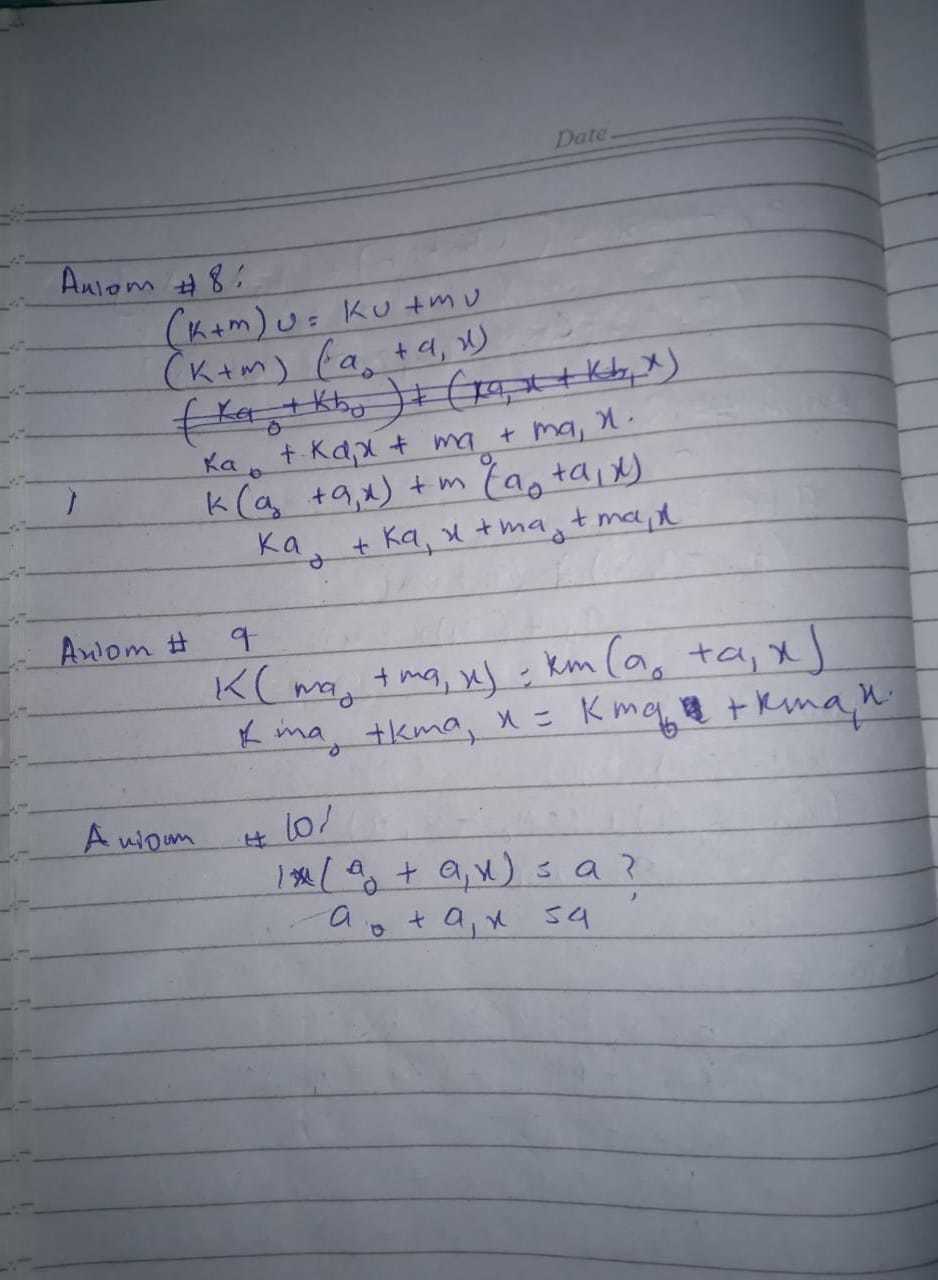 Date
Axiom # 8:
(K+m)u = Ku + mu
(K+m) (a₀ + a₁x)
(Ka₀ + Kb₀) + (Ka₁x + Kb₁x)
Ka₀ + Ka₁x + ma₀ + ma₁x.
K(a₀ + a₁x) + m(a₀ + a₁x)
Ka₀ + Ka₁x + ma₀ + ma₁x
Axiom # 9
K(ma₀ + ma₁x) = km(a₀ + a₁x)
Kma₀ + kma₁x = Kma₀ + kma₁x.
Axiom # 10/
1(a₀ + a₁x) = a ?
a₀ + a₁x = a